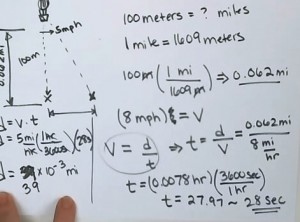 5mph
100m
0.062mi
d = v·t
= 5mi/hr (1hr/3600s)(28s)
= 39 × 10⁻³ mi
100meters = ? miles
1 mile = 1609 meters
100m (1 mi / 1609m) ⇒ 0.062mi
(8 mph) = V
V = d/t ⇒ t = d/V = 0.062mi / 8 mi/hr
t = (0.0078hr)(3600sec / 1hr)
t = 27.97 ~ 28 sec